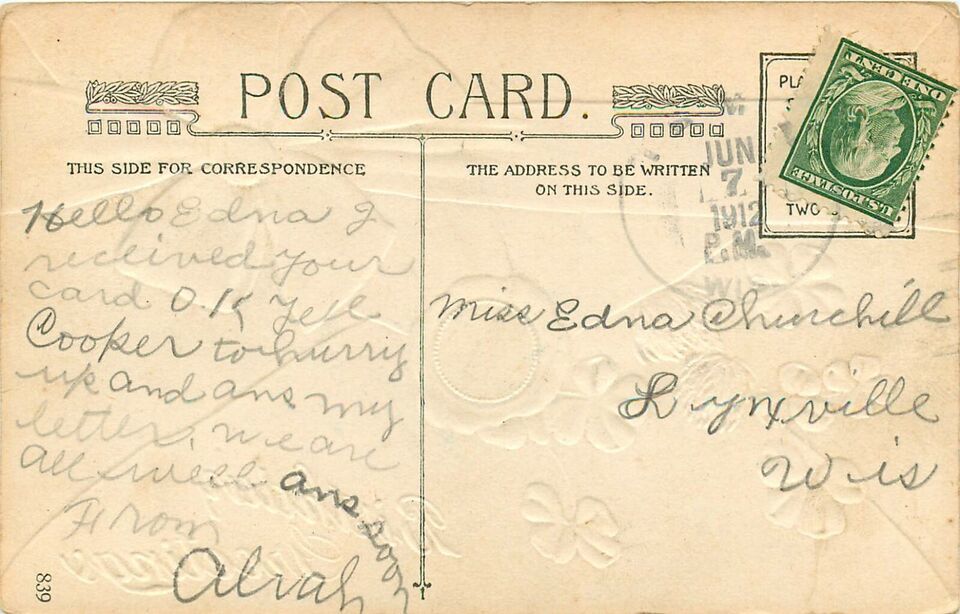 POST CARD.
THIS SIDE FOR CORRESPONDENCE
THE ADDRESS TO BE WRITTEN
ON THIS SIDE.
PLA
TWO
U.S. POSTAGE
ONE CENT
JUN
7
1912
P.M.
WIS
Hello Edna I
received your
card O.K Tell
Cooper to hurry
up and ans my
letter, we are
all well ans soon
From
Alvah
Miss Edna Churchill
Lynxville
Wis
Birthday
Greetings
839